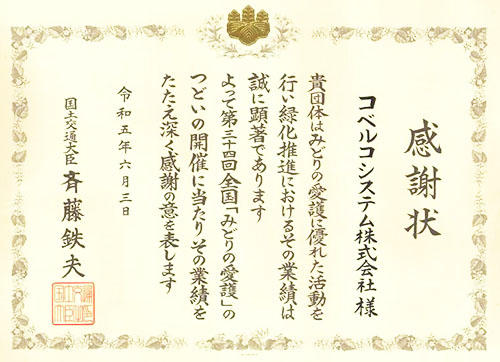 感謝状
コベルコシステム株式会社 様
貴団体はみどりの愛護に優れた活動を
行い緑化推進におけるその業績は
誠に顕著であります
よって第三十四回全国「みどりの愛護」の
つどいの開催に当たりその業績を
たたえ深く感謝の意を表します
令和五年六月三日
国土交通大臣 斉藤鉄夫